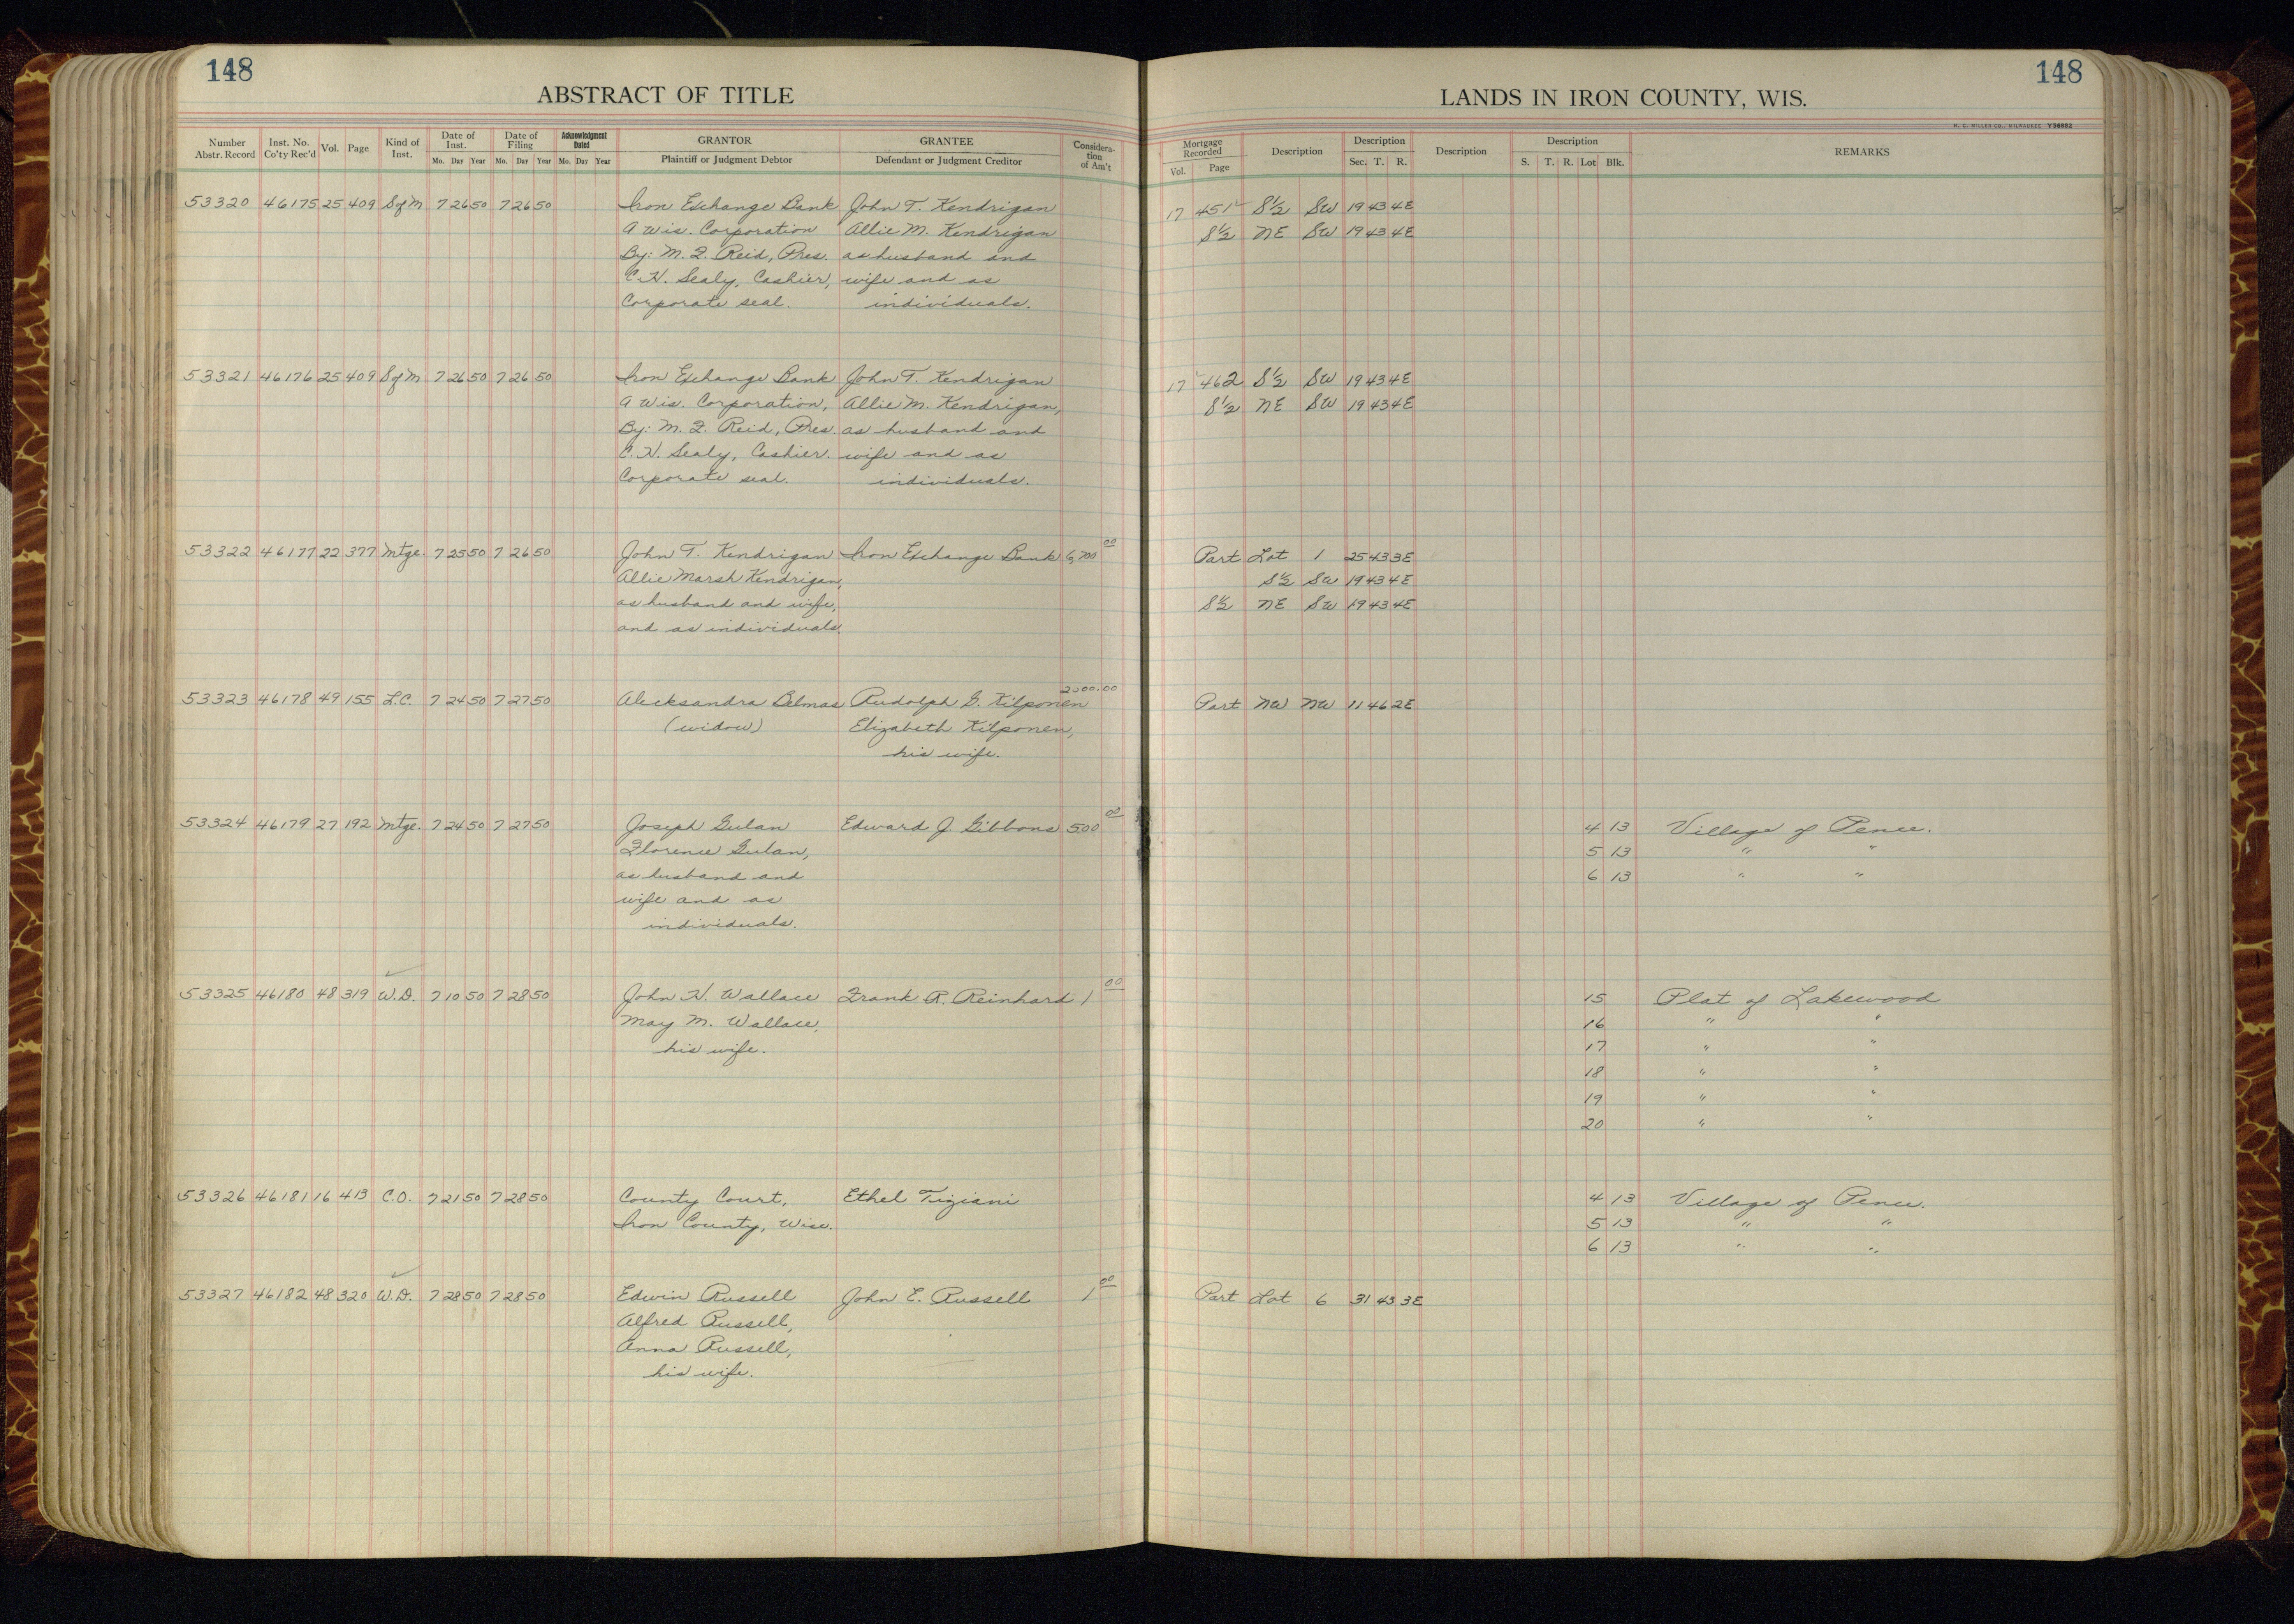 148
ABSTRACT OF TITLE
Number Abstr. Record Inst. No. Co'ty Rec'd Vol. Page Kind of Inst. Date of Inst. Mo. Day Year Date of Filing Mo. Day Year Acknowledgment Dated Mo. Day Year GRANTOR Plaintiff or Judgment Debtor GRANTEE Defendant or Judgment Creditor Considera-tion of Am't
53320 46175 25 409 S of M 7 26 50 7 26 50 Iron Exchange Bank John T. Kendrigan
A Wis. Corporation Allie M. Kendrigan
By: M. F. Reid, Pres. as husband and
C. H. Sealy, Cashier, wife and as
Corporate seal. individuals.
53321 46176 25 409 S of M 7 26 50 7 26 50 Iron Exchange Bank John T. Kendrigan
A Wis. Corporation, Allie M. Kendrigan,
By: M. F. Reid, Pres. as husband and
C. H. Sealy, Cashier. wife and as
Corporate seal. individuals.
53322 46177 22 377 Mtge. 7 25 50 7 26 50 John T. Kendrigan Iron Exchange Bank 6,700 00
Allie Marsh Kendrigan,
as husband and wife,
and as individuals.
53323 46178 49 155 L.C. 7 24 50 7 27 50 Alecksandra Belmas Rudolph G. Kilponen 2000.00
(widow) Elizabeth Kilponen,
his wife.
53324 46179 27 192 Mtge. 7 24 50 7 27 50 Joseph Gulan Edward J. Gibbons 500 00
Florence Gulan,
as husband and
wife and as
individuals.
53325 46180 48 319 W.D. 7 10 50 7 28 50 John H. Wallace Frank R. Reinhard 1 00
May M. Wallace,
his wife.
53326 46181 16 413 C.O. 7 21 50 7 28 50 County Court, Ethel Tiziani
Iron County, Wise.
53327 46182 48 320 W.D. 7 28 50 7 28 50 Edwin Russell John E. Russell 1 00
Alfred Russell,
Anna Russell,
his wife.
148
LANDS IN IRON COUNTY, WIS.
H. C. MILLER CO., MILWAUKEE Y38882
Mortgage Recorded Vol. Page Description Description Sec. T. R. Description Description S. T. R. Lot Blk. REMARKS
17 451 S½ SW 19 43 4E
S½ NE SW 19 43 4E
17 462 S½ SW 19 43 4E
S½ NE SW 19 43 4E
Part Lot 1 25 43 3E
S½ SW 19 43 4E
S½ NE SW 19 43 4E
Part NW NW 11 46 2E
4 13 Village of Pence.
5 13 " "
6 13 " "
15 Plat of Lakewood
16 " "
17 " "
18 " "
19 " "
20 " "
4 13 Village of Pence.
5 13 " "
6 13 " "
Part Lot 6 31 43 3E